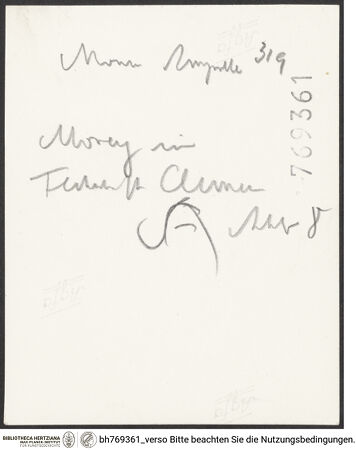 319
Morey in
Festschrift Clemen
Abb 8
769361
BIBLIOTHECA HERTZIANA
MAX-PLANCK-INSTITUT
FÜR KUNSTGESCHICHTE
bh769361_verso Bitte beachten Sie die Nutzungsbedingungen.